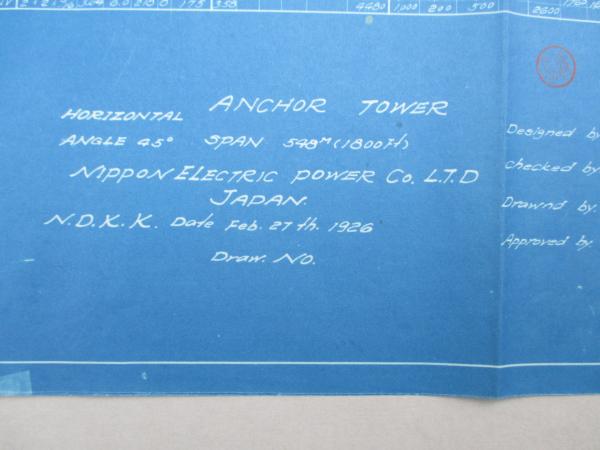 175 358 4480 1000 200 500 2600
ANCHOR TOWER
HORIZONTAL
ANGLE 45° SPAN 548M (1800Ft)
NIPPON ELECTRIC POWER Co. L.T.D
JAPAN.
N.D.K.K. Date Feb. 27th. 1926
Draw. No.
Designed by
checked by
Drawnd by.
Approved by